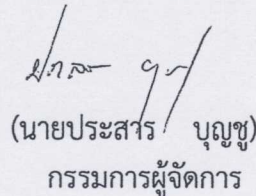 (นายประสาร บุญชู)
กรรมการผู้จัดการ